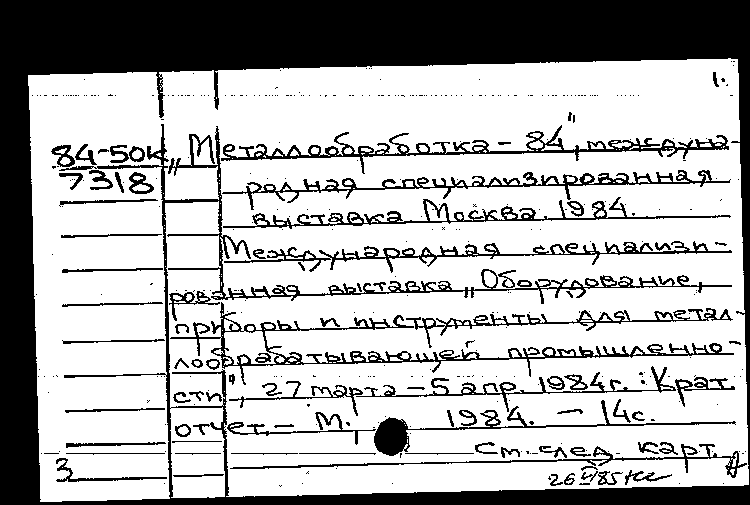 1.
84-50к „Металлообработка - 84", междуна-
7318 родная специализированная
выставка. Москва. 1984.
Международная специализи-
рованная выставка „Оборудование,
приборы и инструменты для метал-
лообрабатывающей промышленно-
сти", 27 марта - 5 апр. 1984г. : Крат.
отчет. - М., 1984. - 14с.
См. след. карт.
3